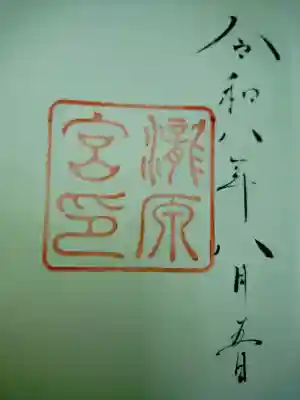 令和八年八月五日
瀧原
宮印